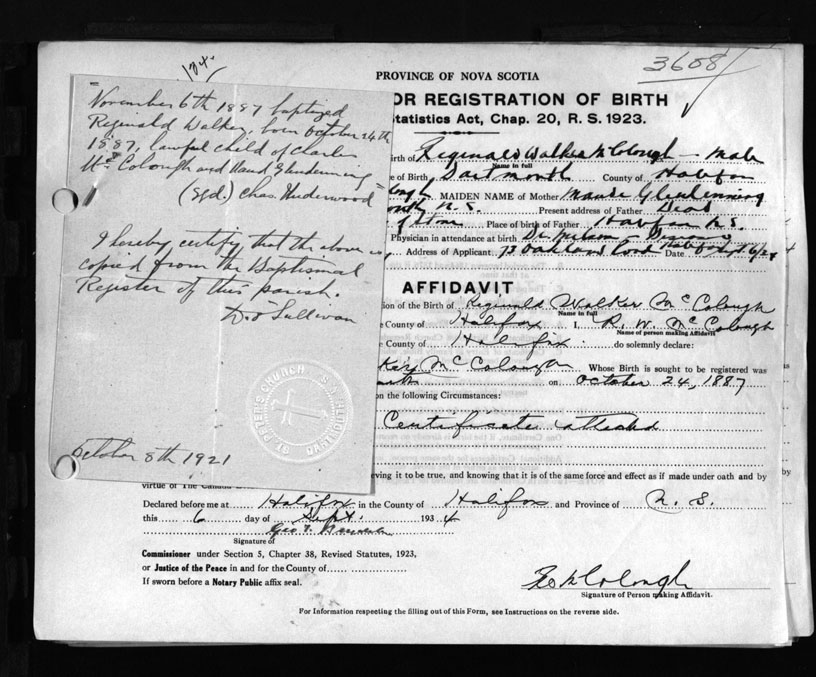 134
3608
PROVINCE OF NOVA SCOTIA
OR REGISTRATION OF BIRTH
tatistics Act, Chap. 20, R. S. 1923.
November 6th 1887 baptized
Reginald Walker, born October 24th
1887, lawful child of Charles
Mc Colough and Maud Glendenning
(Sgd.) Chas. Underwood
I hereby certify that the above is
copied from the Baptismal
Register of this parish.
D. O'Sullivan
ST. PETER'S CHURCH
October 8th 1921
irth of Reginald Walker McColough Male
Name in full
e of Birth Dartmouth County of Halifax
MAIDEN NAME of Mother Maude Glendenning
N. S. Present address of Father Dead
Place of birth of Father Halifax N.S.
Physician in attendance at birth Dr.
Address of Applicant 73 Oakland Road Date
AFFIDAVIT
ion of the Birth of Reginald Walker McColough
Name in full
e County of Halifax I, R. W. McColough
Name of person making Affidavit
e County of Halifax do solemnly declare:
ker McColough Whose Birth is sought to be registered was
on October 24, 1887
on the following Circumstances:
Certificate attached
eving it to be true, and knowing that it is of the same force and effect as if made under oath and by
virtue of The Canada
Declared before me at Halifax in the County of Halifax and Province of N. S.
this 6 day of Sept. 1934
Geo. T.
Signature of
Commissioner under Section 5, Chapter 38, Revised Statutes, 1923,
or Justice of the Peace in and for the County of
If sworn before a Notary Public affix seal.
McColough
Signature of Person making Affidavit.
For Information respecting the filling out of this Form, see Instructions on the reverse side.